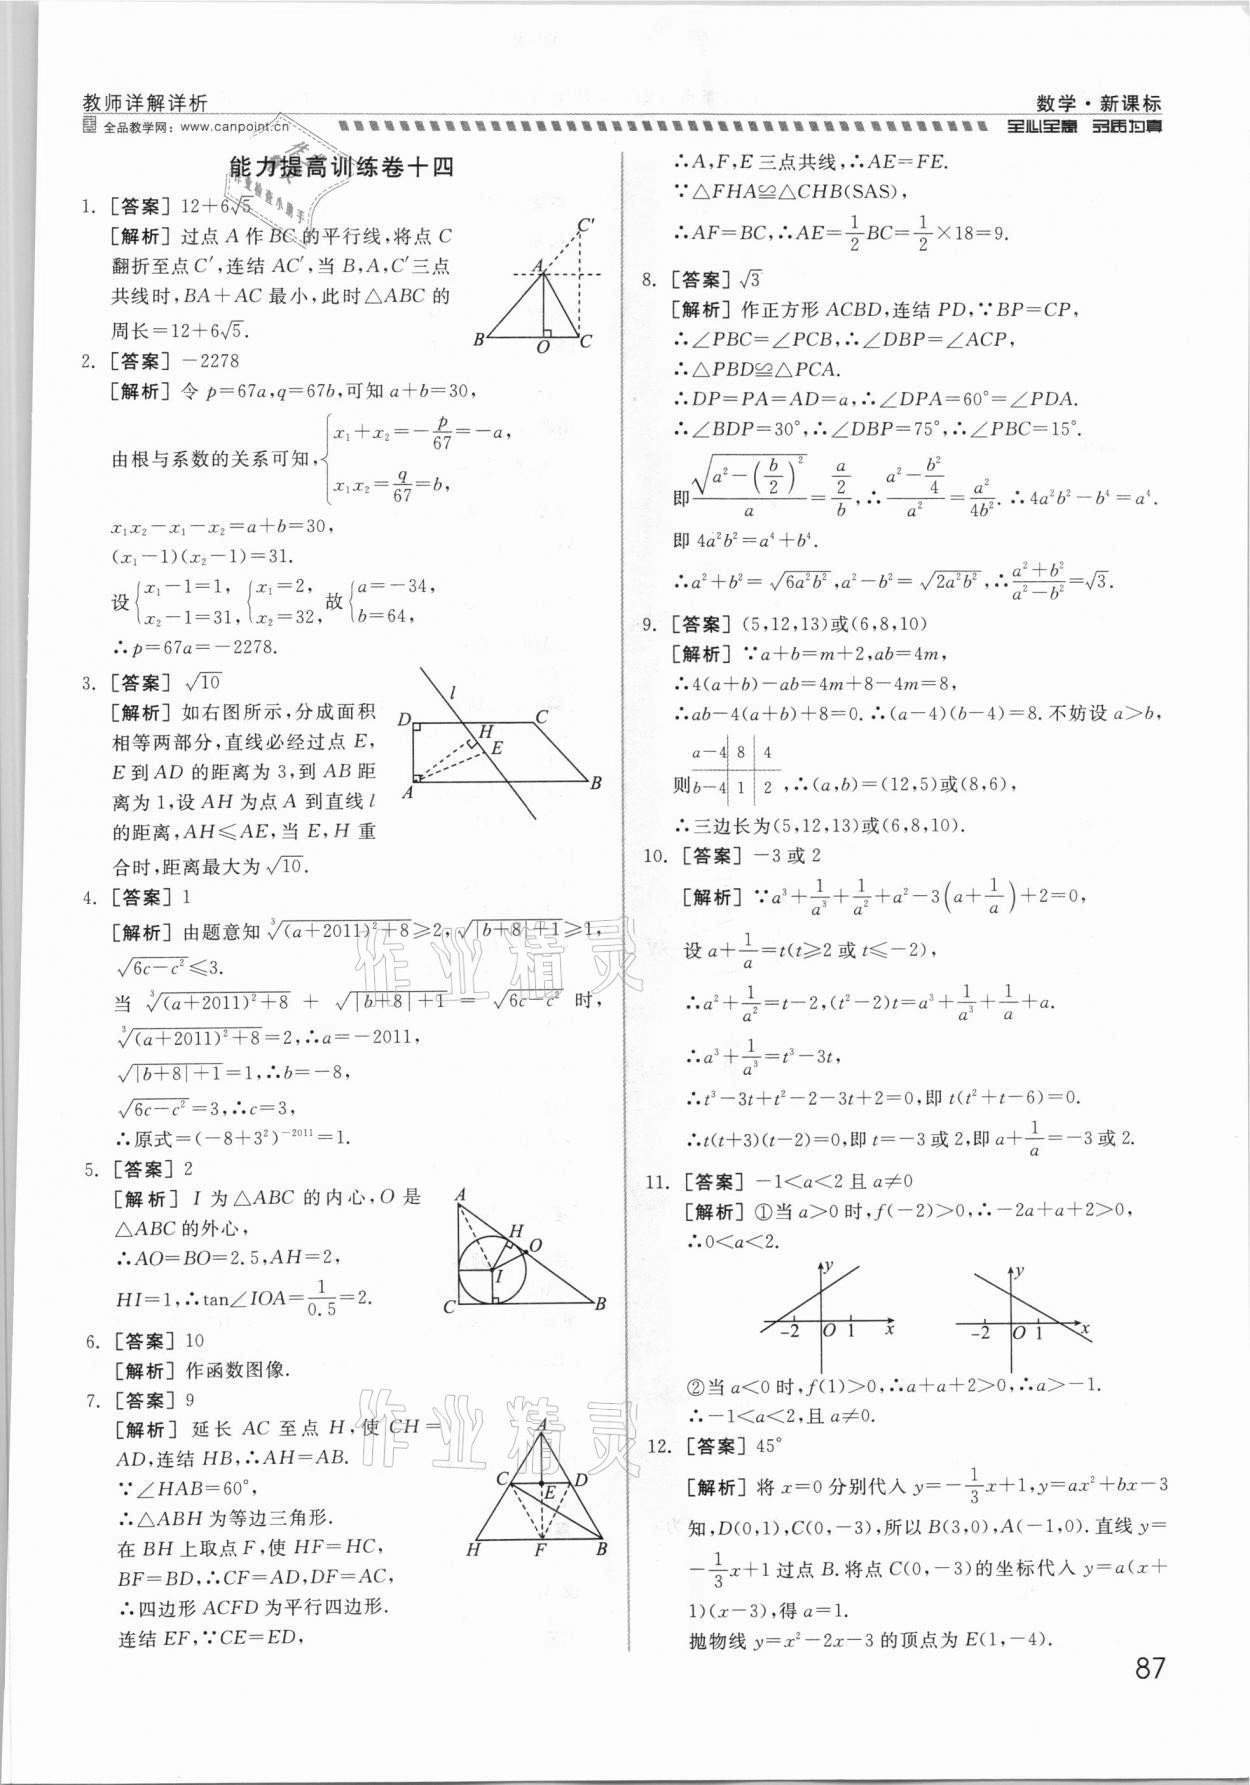 教师详解详析
全品教学网：www.canpoint.cn
数学·新课标
全心全意 品质为真
能力提高训练卷十四
1. [答案] 12+6√5
[解析] 过点 A 作 BC 的平行线,将点 C
翻折至点 C′,连结 AC′,当 B,A,C′三点
共线时,BA+AC 最小,此时△ABC 的
周长=12+6√5.
C′
A
B O C
2. [答案] −2278
[解析] 令 p=67a,q=67b,可知 a+b=30,
由根与系数的关系可知,{x₁+x₂=−p/67=−a,
x₁x₂=q/67=b,
x₁x₂−x₁−x₂=a+b=30,
(x₁−1)(x₂−1)=31.
设{x₁−1=1, {x₁=2, 故{a=−34,
x₂−1=31, x₂=32, b=64,
∴p=67a=−2278.
3. [答案] √10
[解析] 如右图所示,分成面积
相等两部分,直线必经过点 E,
E到 AD 的距离为 3,到 AB 距
离为 1,设 AH 为点 A 到直线 l
的距离,AH≤AE,当 E,H 重
合时,距离最大为√10.
l
D C
H
E
A B
4. [答案] 1
[解析] 由题意知 ∛((a+2011)²+8)≥2,√(|b+8|+1)≥1,
√(6c−c²)≤3.
当 ∛((a+2011)²+8) + √(|b+8|+1) = √(6c−c²) 时,
∛((a+2011)²+8)=2,∴a=−2011,
√(|b+8|+1)=1,∴b=−8,
√(6c−c²)=3,∴c=3,
∴原式=(−8+3²)⁻²⁰¹¹=1.
5. [答案] 2
[解析] I 为△ABC 的内心,O 是
△ABC 的外心,
∴AO=BO=2.5,AH=2,
HI=1,∴tan∠IOA=1/0.5=2.
A
H
O
I
C B
6. [答案] 10
[解析] 作函数图像.
7. [答案] 9
[解析] 延长 AC 至点 H,使 CH=
AD,连结 HB,∴AH=AB.
∵∠HAB=60°,
∴△ABH 为等边三角形.
在 BH 上取点 F,使 HF=HC,
BF=BD,∴CF=AD,DF=AC,
∴四边形 ACFD 为平行四边形.
连结 EF,∵CE=ED,
A
C E D
H F B
∴A,F,E 三点共线,∴AE=FE.
∵△FHA≌△CHB(SAS),
∴AF=BC,∴AE=1/2BC=1/2×18=9.
8. [答案] √3
[解析] 作正方形 ACBD,连结 PD,∵BP=CP,
∴∠PBC=∠PCB,∴∠DBP=∠ACP,
∴△PBD≌△PCA.
∴DP=PA=AD=a,∴∠DPA=60°=∠PDA.
∴∠BDP=30°,∴∠DBP=75°,∴∠PBC=15°.
即 √(a²−(b/2)²)/a=(a/2)/b,∴(a²−b²/4)/a²=a²/4b².∴4a²b²−b⁴=a⁴.
即 4a²b²=a⁴+b⁴.
∴a²+b²=√(6a²b²),a²−b²=√(2a²b²),∴(a²+b²)/(a²−b²)=√3.
9. [答案] (5,12,13)或(6,8,10)
[解析] ∵a+b=m+2,ab=4m,
∴4(a+b)−ab=4m+8−4m=8,
∴ab−4(a+b)+8=0.∴(a−4)(b−4)=8.不妨设 a>b,
a−4 8 4
则 b−4 1 2 ,∴(a,b)=(12,5)或(8,6),
∴三边长为(5,12,13)或(6,8,10).
10. [答案] −3 或 2
[解析] ∵a³+1/a³+1/a²+a²−3(a+1/a)+2=0,
设 a+1/a=t(t≥2 或 t≤−2),
∴a²+1/a²=t−2,(t²−2)t=a³+1/a³+1/a+a.
∴a³+1/a³=t³−3t,
∴t³−3t+t²−2−3t+2=0,即 t(t²+t−6)=0.
∴t(t+3)(t−2)=0,即 t=−3 或 2,即 a+1/a=−3 或 2.
11. [答案] −1<a<2 且 a≠0
[解析] ①当 a>0 时,f(−2)>0,∴−2a+a+2>0,
∴0<a<2.
y y
−2 O 1 x −2 O 1 x
②当 a<0 时,f(1)>0,∴a+a+2>0,∴a>−1.
∴−1<a<2,且 a≠0.
12. [答案] 45°
[解析] 将 x=0 分别代入 y=−1/3x+1,y=ax²+bx−3
知,D(0,1),C(0,−3),所以 B(3,0),A(−1,0).直线 y=
−1/3x+1 过点 B.将点 C(0,−3)的坐标代入 y=a(x+
1)(x−3),得 a=1.
抛物线 y=x²−2x−3 的顶点为 E(1,−4).
87
作业精灵
作业精灵
作业检查小助手